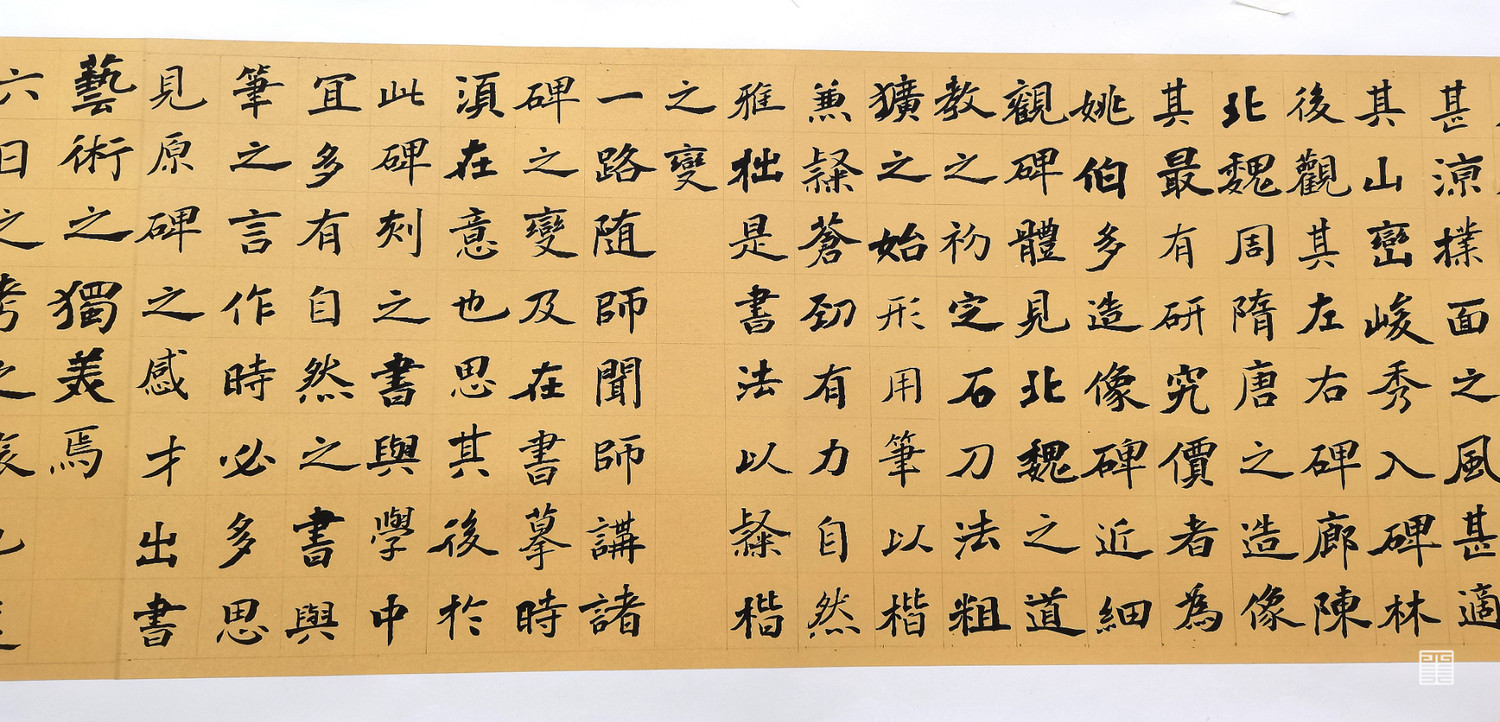 甚涼撲面之風甚適
其山巒峻秀入碑林
後觀其左右碑廊陳
北魏周隋唐之造像
其最有研究價者為
姚伯多造像碑近細
觀碑體見北魏之道
教之初定石刀法粗
獷之始形用筆以楷
兼粲蒼劲有力自然
雅拙是書法以粲楷
之變
一路随師聞師講諸
碑之變及在書摹時
湏在意也思其後於
此碑刻之書與學中
宜多有自然之書與
筆之言作時必多思
見原碑之感才出書
藝術之獨美焉
六日之考之